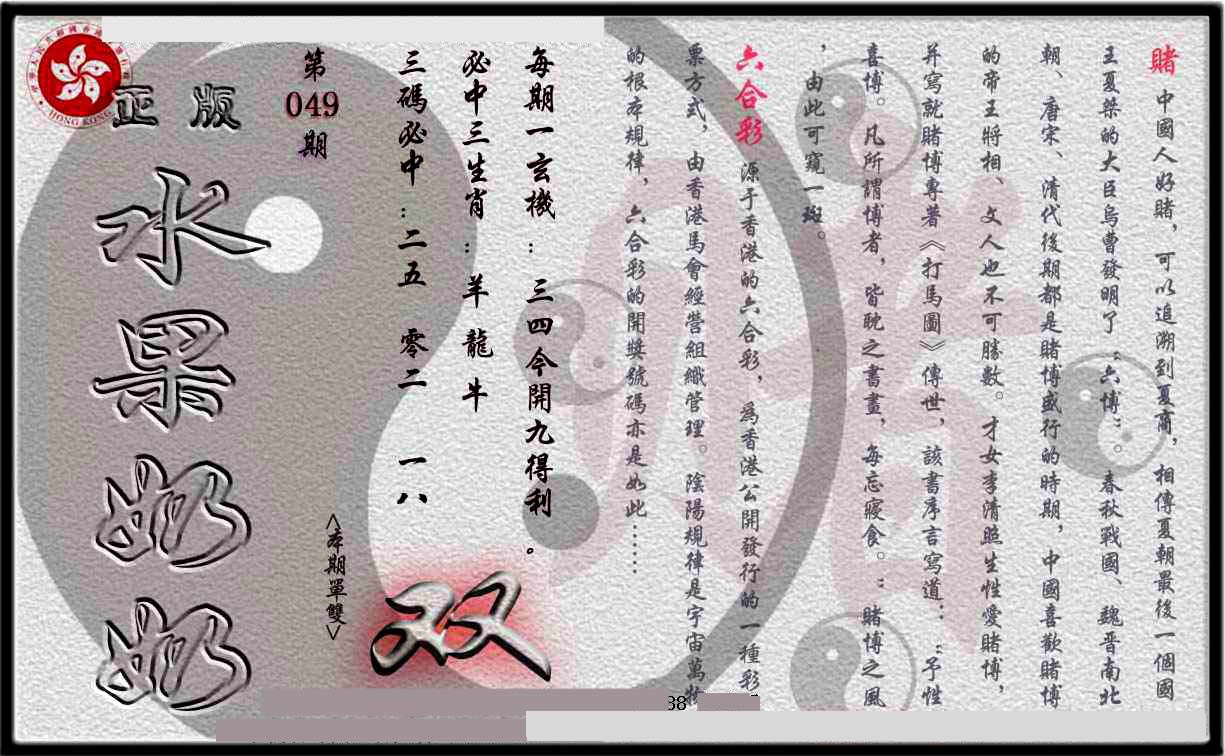 賭 中國人好賭，可以追溯到夏商，相傳夏朝最後一個國
王夏桀的大臣烏曹發明了“六博”。春秋戰國、魏晋南北
朝、唐宋、清代後期都是賭博盛行的時期，中國喜歡賭博
的帝王將相、文人也不可勝數。才女李清照生性愛賭博，
并寫就賭博專著《打馬圖》傳世，該書序言寫道：“予性
喜博。凡所謂博者，皆耽之書畫，每忘寢食。”賭博之風
，由此可窺一斑。
六合彩 源于香港的六合彩，爲香港公開發行的一種彩
票方式，由香港馬會經營組織管理。陰陽規律是宇宙萬物
的根本規律，六合彩的開獎號碼亦是如此……
每期一玄機：三四今開九得利。
必中三生肖：羊 龍 牛
三碼必中：二五 零二 一八
<本期單雙>
双
第
049
期
正版
水果奶奶
HONG KONG
38